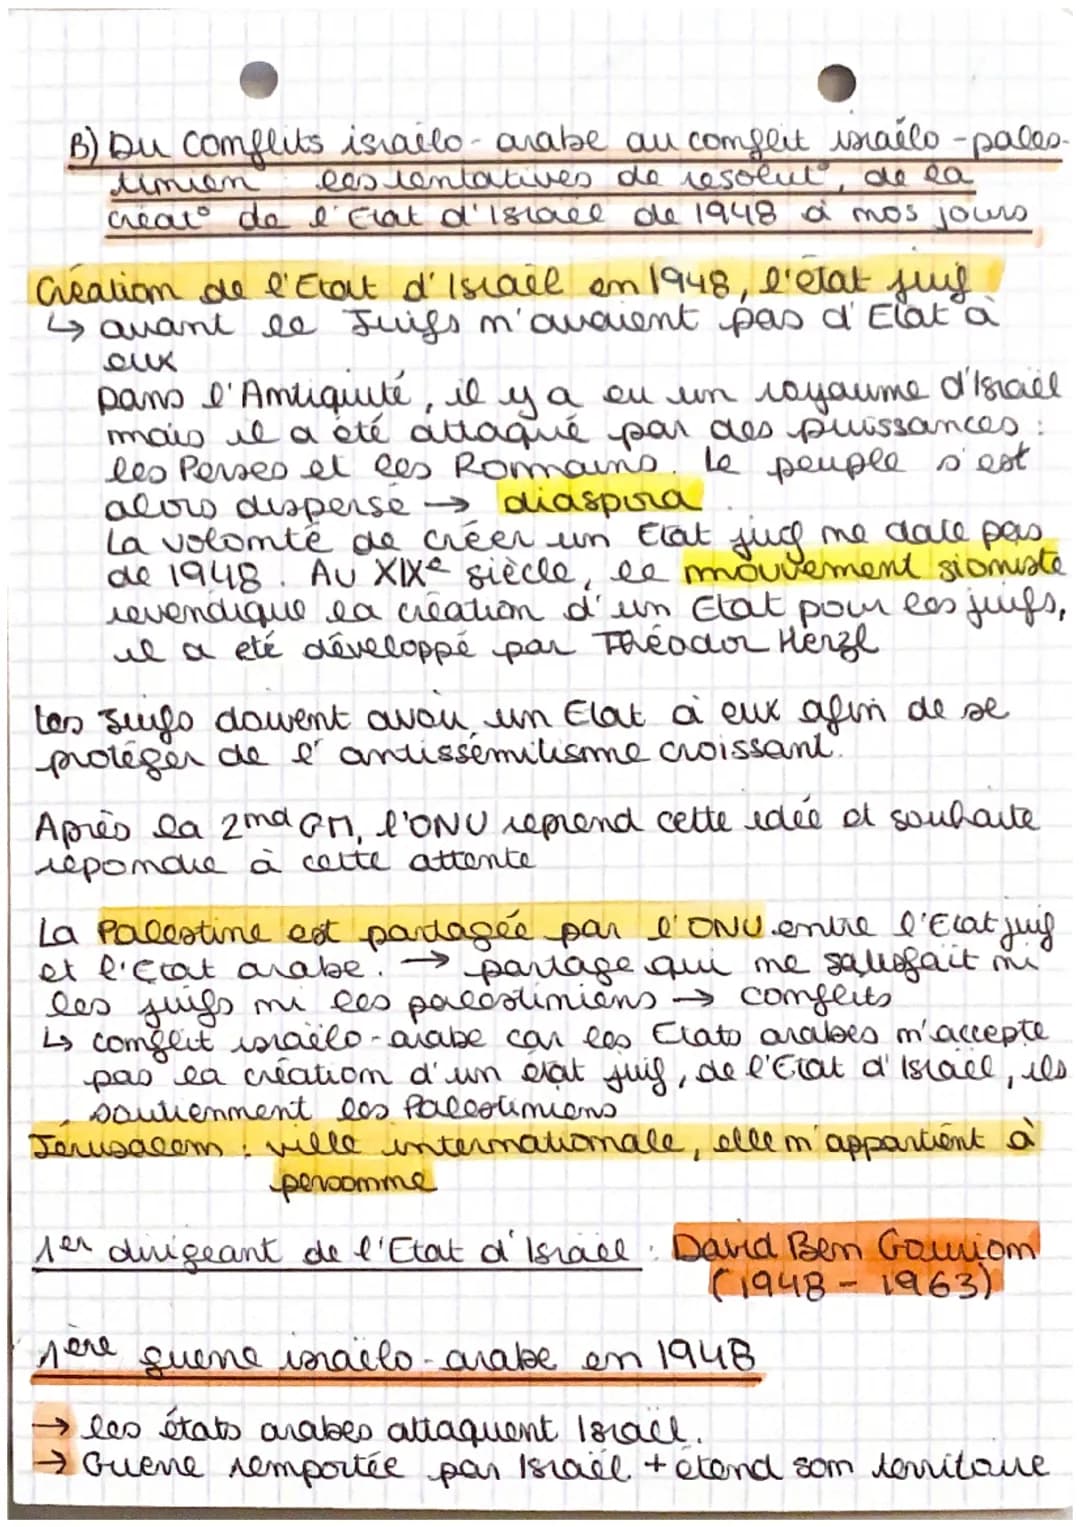 B) Du Conflits israëlo-arabe au conflit israëlo-pales-
tinien : les tentatives de resolut°, de la
créat° de l'Etat d'Israël de 1948 à nos jours
Création de l'Etat d'Israël en 1948, l'état juif
↳ avant le Juifs n'avaient pas d'Etat à
eux
Dans l'Antiquité, il y a eu un royaume d'Israël
mais il a été attaqué par des puissances :
les Perses et les Romains. Le peuple s'est
alors dispersé → diaspora
La volonté de créer un Etat juif ne date pas
de 1948. Au XIXe siècle, le mouvement sioniste
revendique la création d'un Etat pour les juifs,
il a été développé par Théodor Herzl
Les Juifs doivent avoir un Etat à eux afin de se
protéger de l'antissémitisme croissant.
Après la 2nd GM, l'ONU reprend cette idée et souhaite
répondre à cette attente
La Palestine est partagée par l'ONU entre l'Etat juif
et l'Etat arabe. → partage qui ne satisfait ni
les juifs ni les palestiniens → conflits
↳ conflit israëlo-arabe car les Etats arabes n'accepte
pas la création d'un état juif, de l'Etat d'Israël, ils
soutiennent les Palestiniens
Jérusalem : ville internationale, elle n'appartient à
personne
1er dirigeant de l'Etat d'Israël : David Ben Gourion
(1948 - 1963)
1ère guerre israëlo-arabe en 1948
→ les états arabes attaquent Israël.
→ Guerre remportée par Israël + étend son territoire